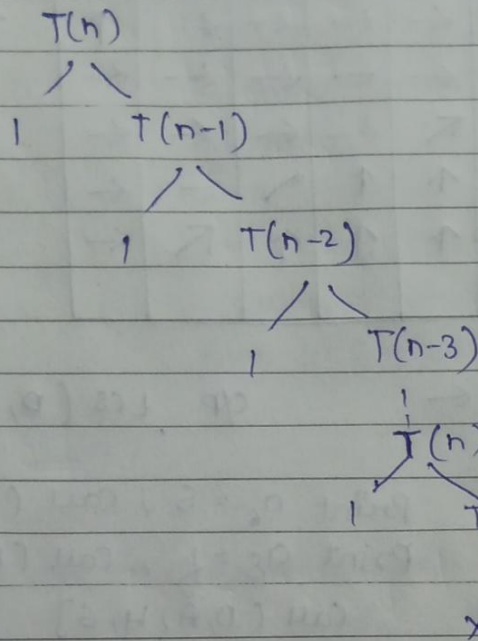 T(n)
1 T(n-1)
1 T(n-2)
1 T(n-3)
T(n)
1 T